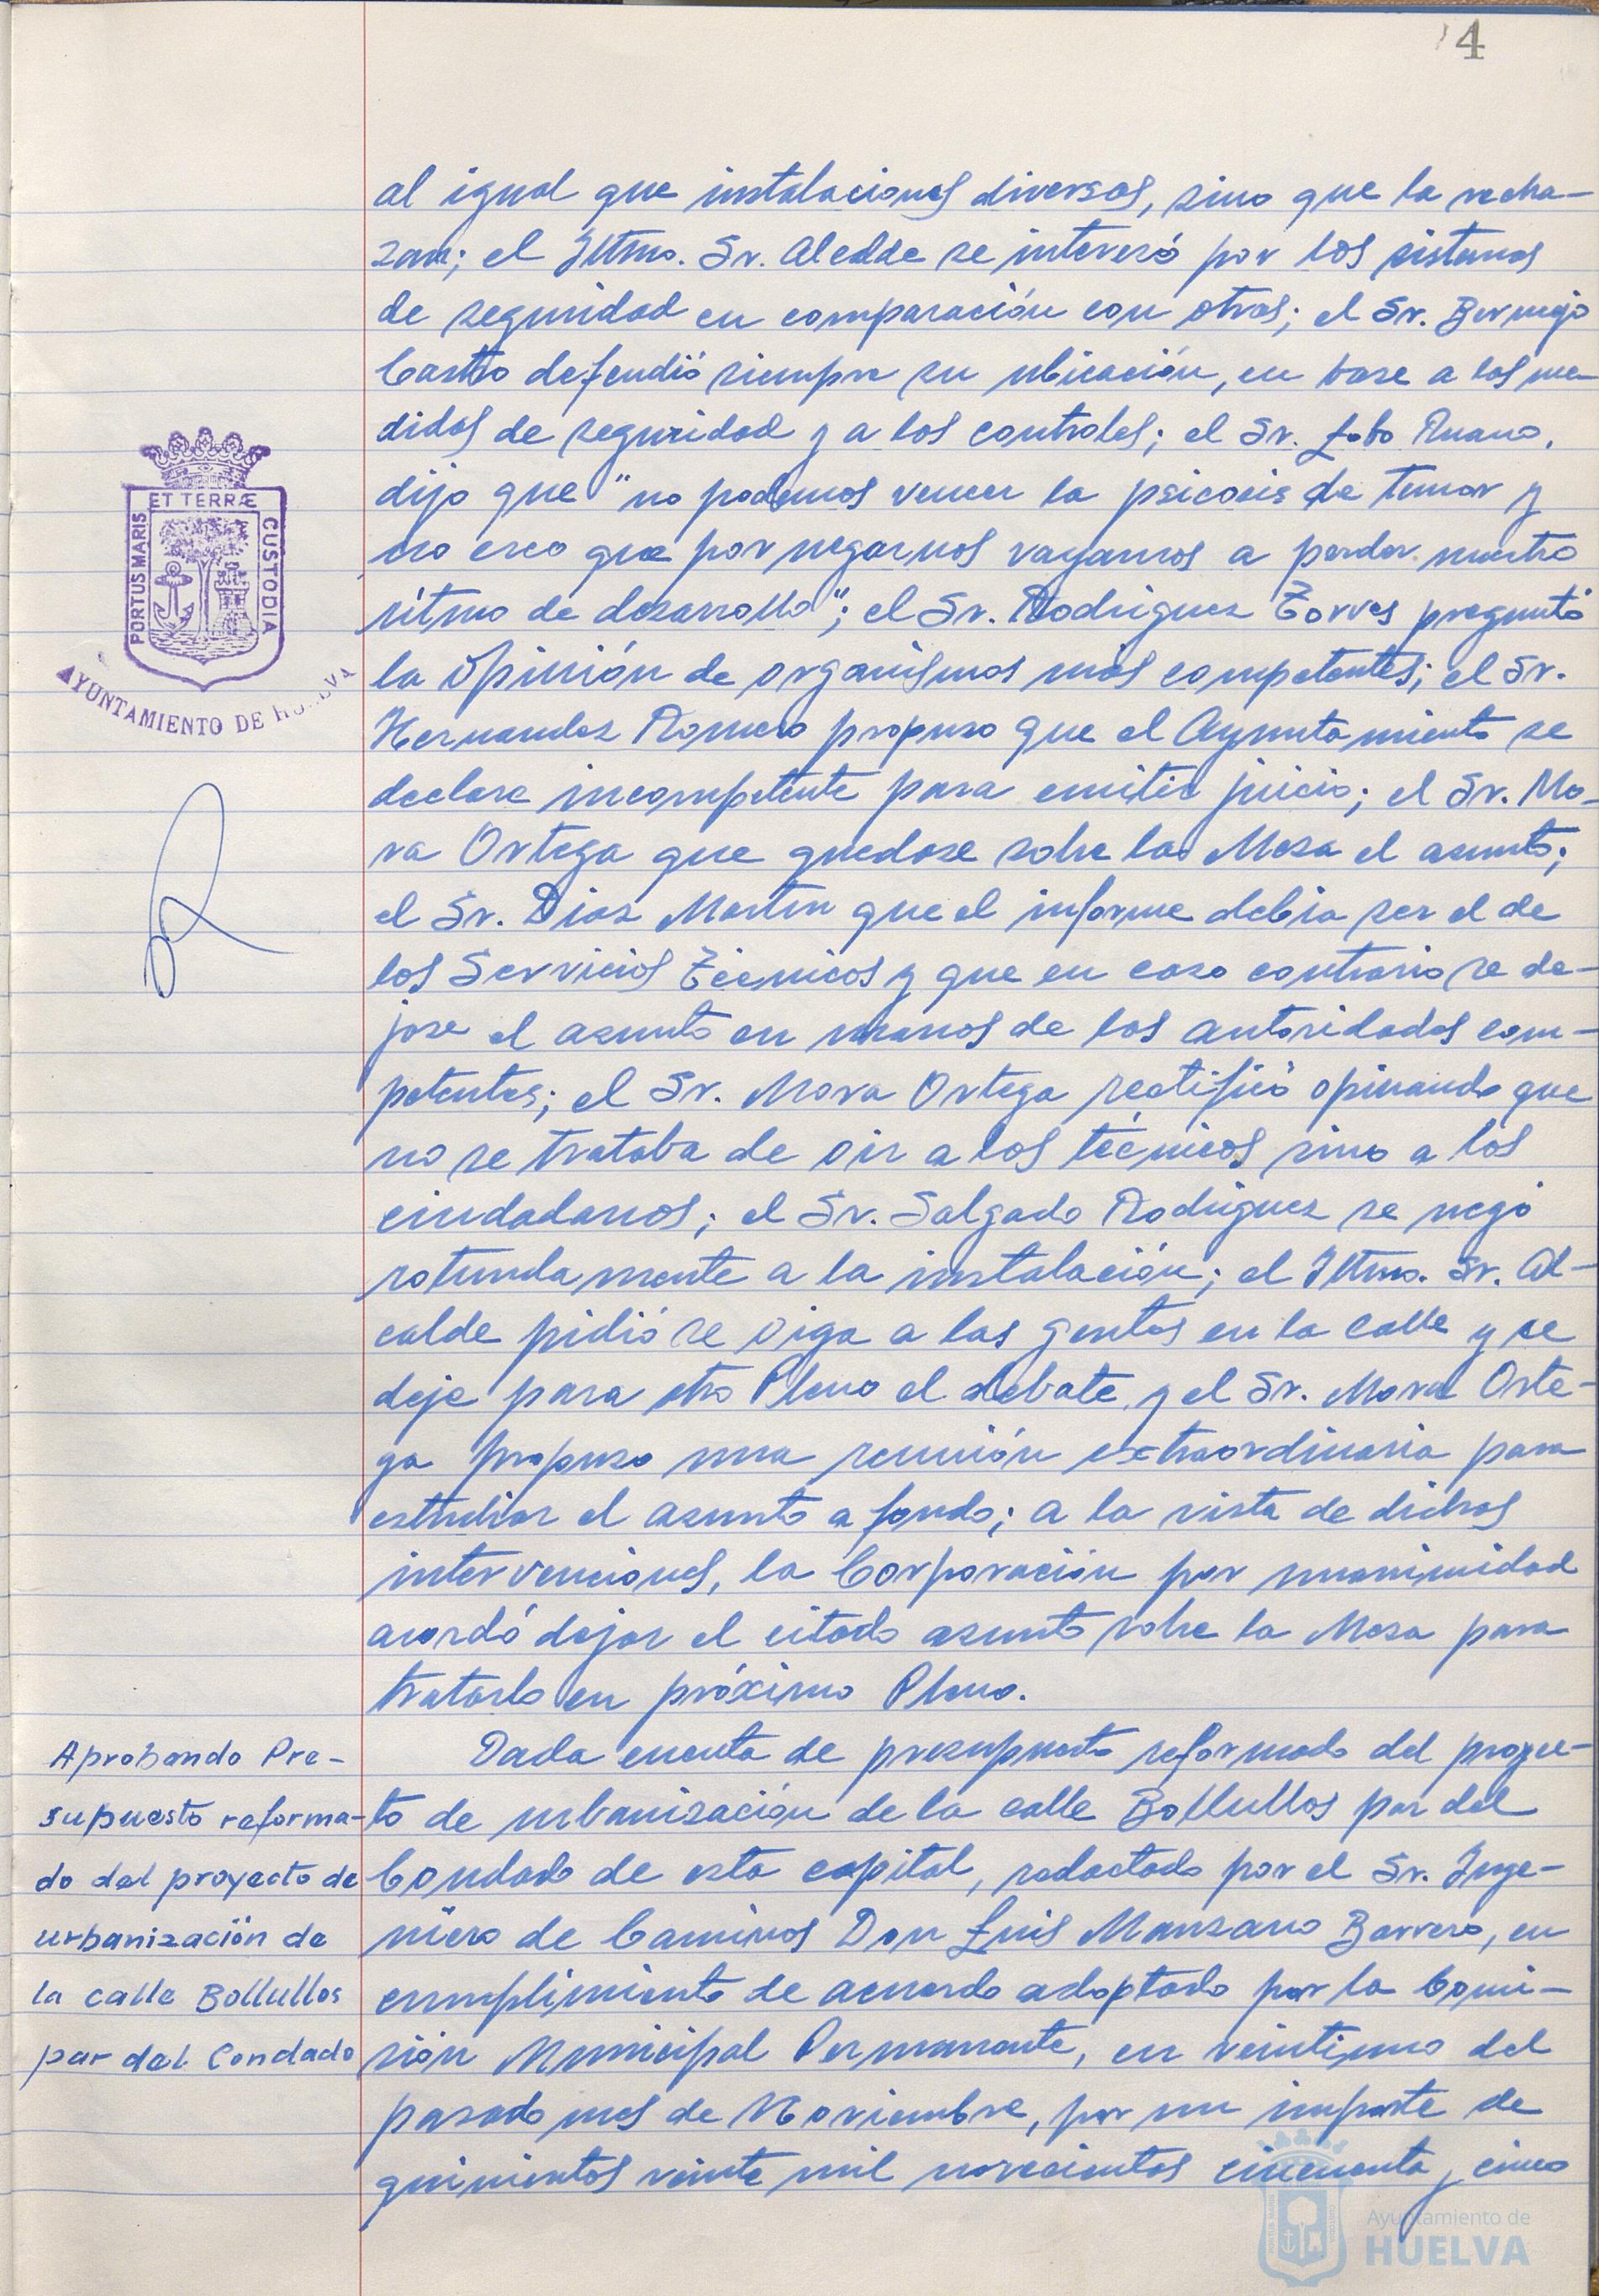 4
al igual que instalaciones diversas, sino que la recha-
zan; el Iltmo. Sr. Alcalde se interesó por los sistemas
de seguridad en comparación con otras; el Sr. Bermejo
Castro defendió siempre su ubicación, en base a las me-
didas de seguridad y a los controles; el Sr. Lobo Ruano,
dijo que "no podemos vencer la psicosis de temor y
no creo que por negarnos vayamos a perder nuestro
ritmo de desarrollo"; el Sr. Rodriguez Torres preguntó
la opinión de organismos más competentes; el Sr.
Hernandez Romero propuso que el Ayuntamiento se
declare incompetente para emitir juicio; el Sr. Mo-
ra Ortega que quedase sobre la Mesa el asunto;
el Sr. Dias Martin que el informe debia ser el de
los Servicios Técnicos y que en caso contrario se de-
jase el asunto en manos de las autoridades com-
petentes; el Sr. Mora Ortega rectificó opinando que
no se trataba de oir a los técnicos sino a los
ciudadanos; el Sr. Salgado Rodriguez se negó
rotundamente a la instalación; el Iltmo. Sr. Al-
calde pidió se oiga a las gentes en la calle y se
deje para otro Pleno el debate y el Sr. Mora Orte-
ga propuso una reunión extraordinaria para
estudiar el asunto a fondo; a la vista de dichas
intervenciones, la Corporación por unanimidad
acordó dejar el citado asunto sobre la Mesa para
tratarlo en próximo Pleno.
Aprobando Pre-
supuesto reforma-
do del proyecto de
urbanización de
la calle Bollullos
par del Condado
Dada cuenta de presupuesto reformado del proyec-
to de urbanización de la calle Bollullos par del
Condado de esta capital, redactado por el Sr. Inge-
niero de Caminos Don Luis Manzano Barrero, en
cumplimiento de acuerdo adoptado por la Comi-
sión Municipal Permanente, en veintiuno del
pasado mes de Noviembre, por un importe de
quinientas veinte mil novecientas cincuenta y cinco
PORTUS MARIS ET TERRÆ CUSTODIA
AYUNTAMIENTO DE HUELVA
Ayuntamiento de
HUELVA